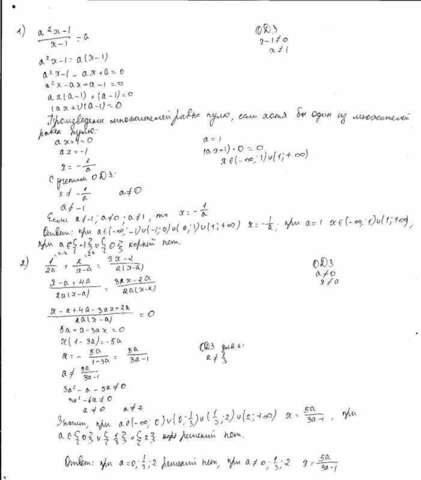 1) (a²x-1)/(x-1) = a
ОДЗ
x-1≠0
x≠1
a²x-1 = a(x-1)
a²x-1 - ax+a=0
a²x-ax+a-1=0
ax(a-1)+(a-1)=0
(ax+1)(a-1)=0
Произведение множителей равно нулю, если хотя бы один из множителей
равен нулю:
ax+1=0 a=1
ax=-1 (ax+1)·0=0
x=-1/a x∈(-∞;1)∪(1;+∞)
С учетом ОДЗ:
1≠-1/a a≠0
a≠-1
Если a≠-1; a≠0; a≠1, то x=-1/a
Ответ: при a∈(-∞;-1)∪(-1;0)∪(0;1)∪(1;+∞) x=-1/a, при a=1 x∈(-∞;1)∪(1;+∞),
при a∈{-1}∪{0} корней нет.
2)
ОДЗ
a≠0
x≠a
x-a+4a
2a(x-a)
=0
5a+x-3ax=0
x(1-3a)=-5a
x=-5a/(1-3a)=5a/(3a-1)
ОДЗ для
a≠5a/(3a-1)
3a²-a-5a≠0
3a²-6a≠0
a≠0 a≠2
Значит, при a∈(-∞;0)∪(0;1/3)∪(1/3;2)∪(2;+∞) x=5a/(3a-1), при
a∈{0}∪{1/3}∪{2} решений нет.
Ответ: при a=0;1/3;2 решений нет, при a≠0;1/3;2 x=5a/(3a-1)